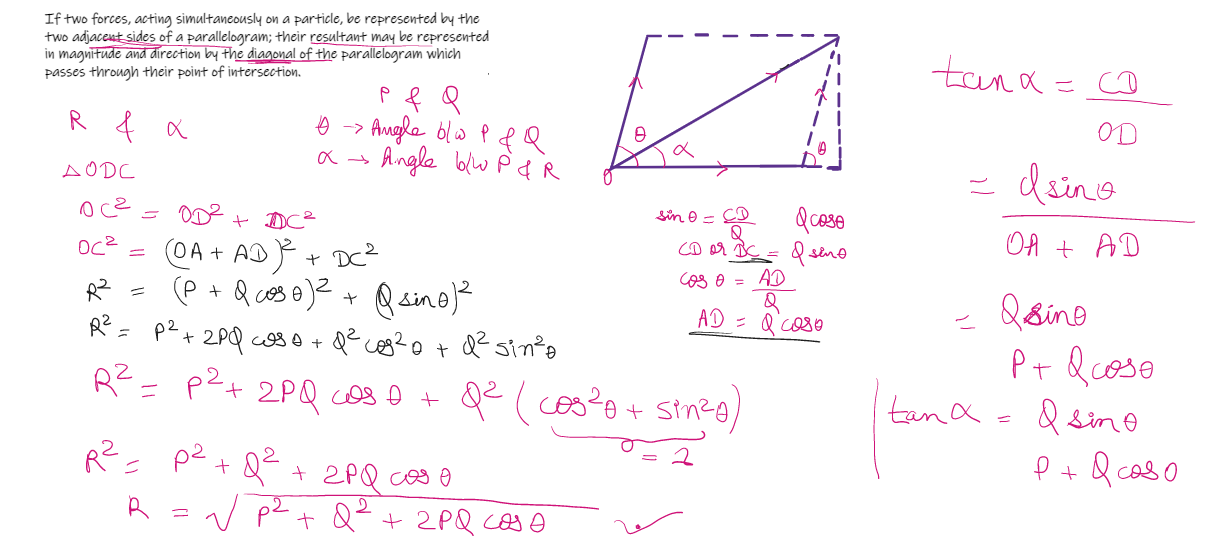 If two forces, acting simultaneously on a particle, be represented by the
two adjacent sides of a parallelogram; their resultant may be represented
in magnitude and direction by the diagonal of the parallelogram which
passes through their point of intersection.
P & Q
θ -> Angle b/w P & Q
α -> Angle b/w P & R
R & α
△ODC
OC² = OD² + DC²
OC² = (OA + AD)² + DC²
R² = (P + Q cos θ)² + Q sin θ)²
R² = P² + 2PQ cos θ + Q² cos² θ + Q² sin² θ
R² = P² + 2PQ cos θ + Q² (cos² θ + sin² θ)
R² = P² + Q² + 2PQ cos θ
R = √P² + Q² + 2PQ cos θ
θ
α
θ
O
sin θ = CD/Q
Q cos θ
CD or DC = Q sin θ
cos θ = AD/Q
AD = Q cos θ
tan α = CD/OD
= Q sin θ
OA + AD
= Q sin θ
P + Q cos θ
tan α = Q sin θ
P + Q cos θ